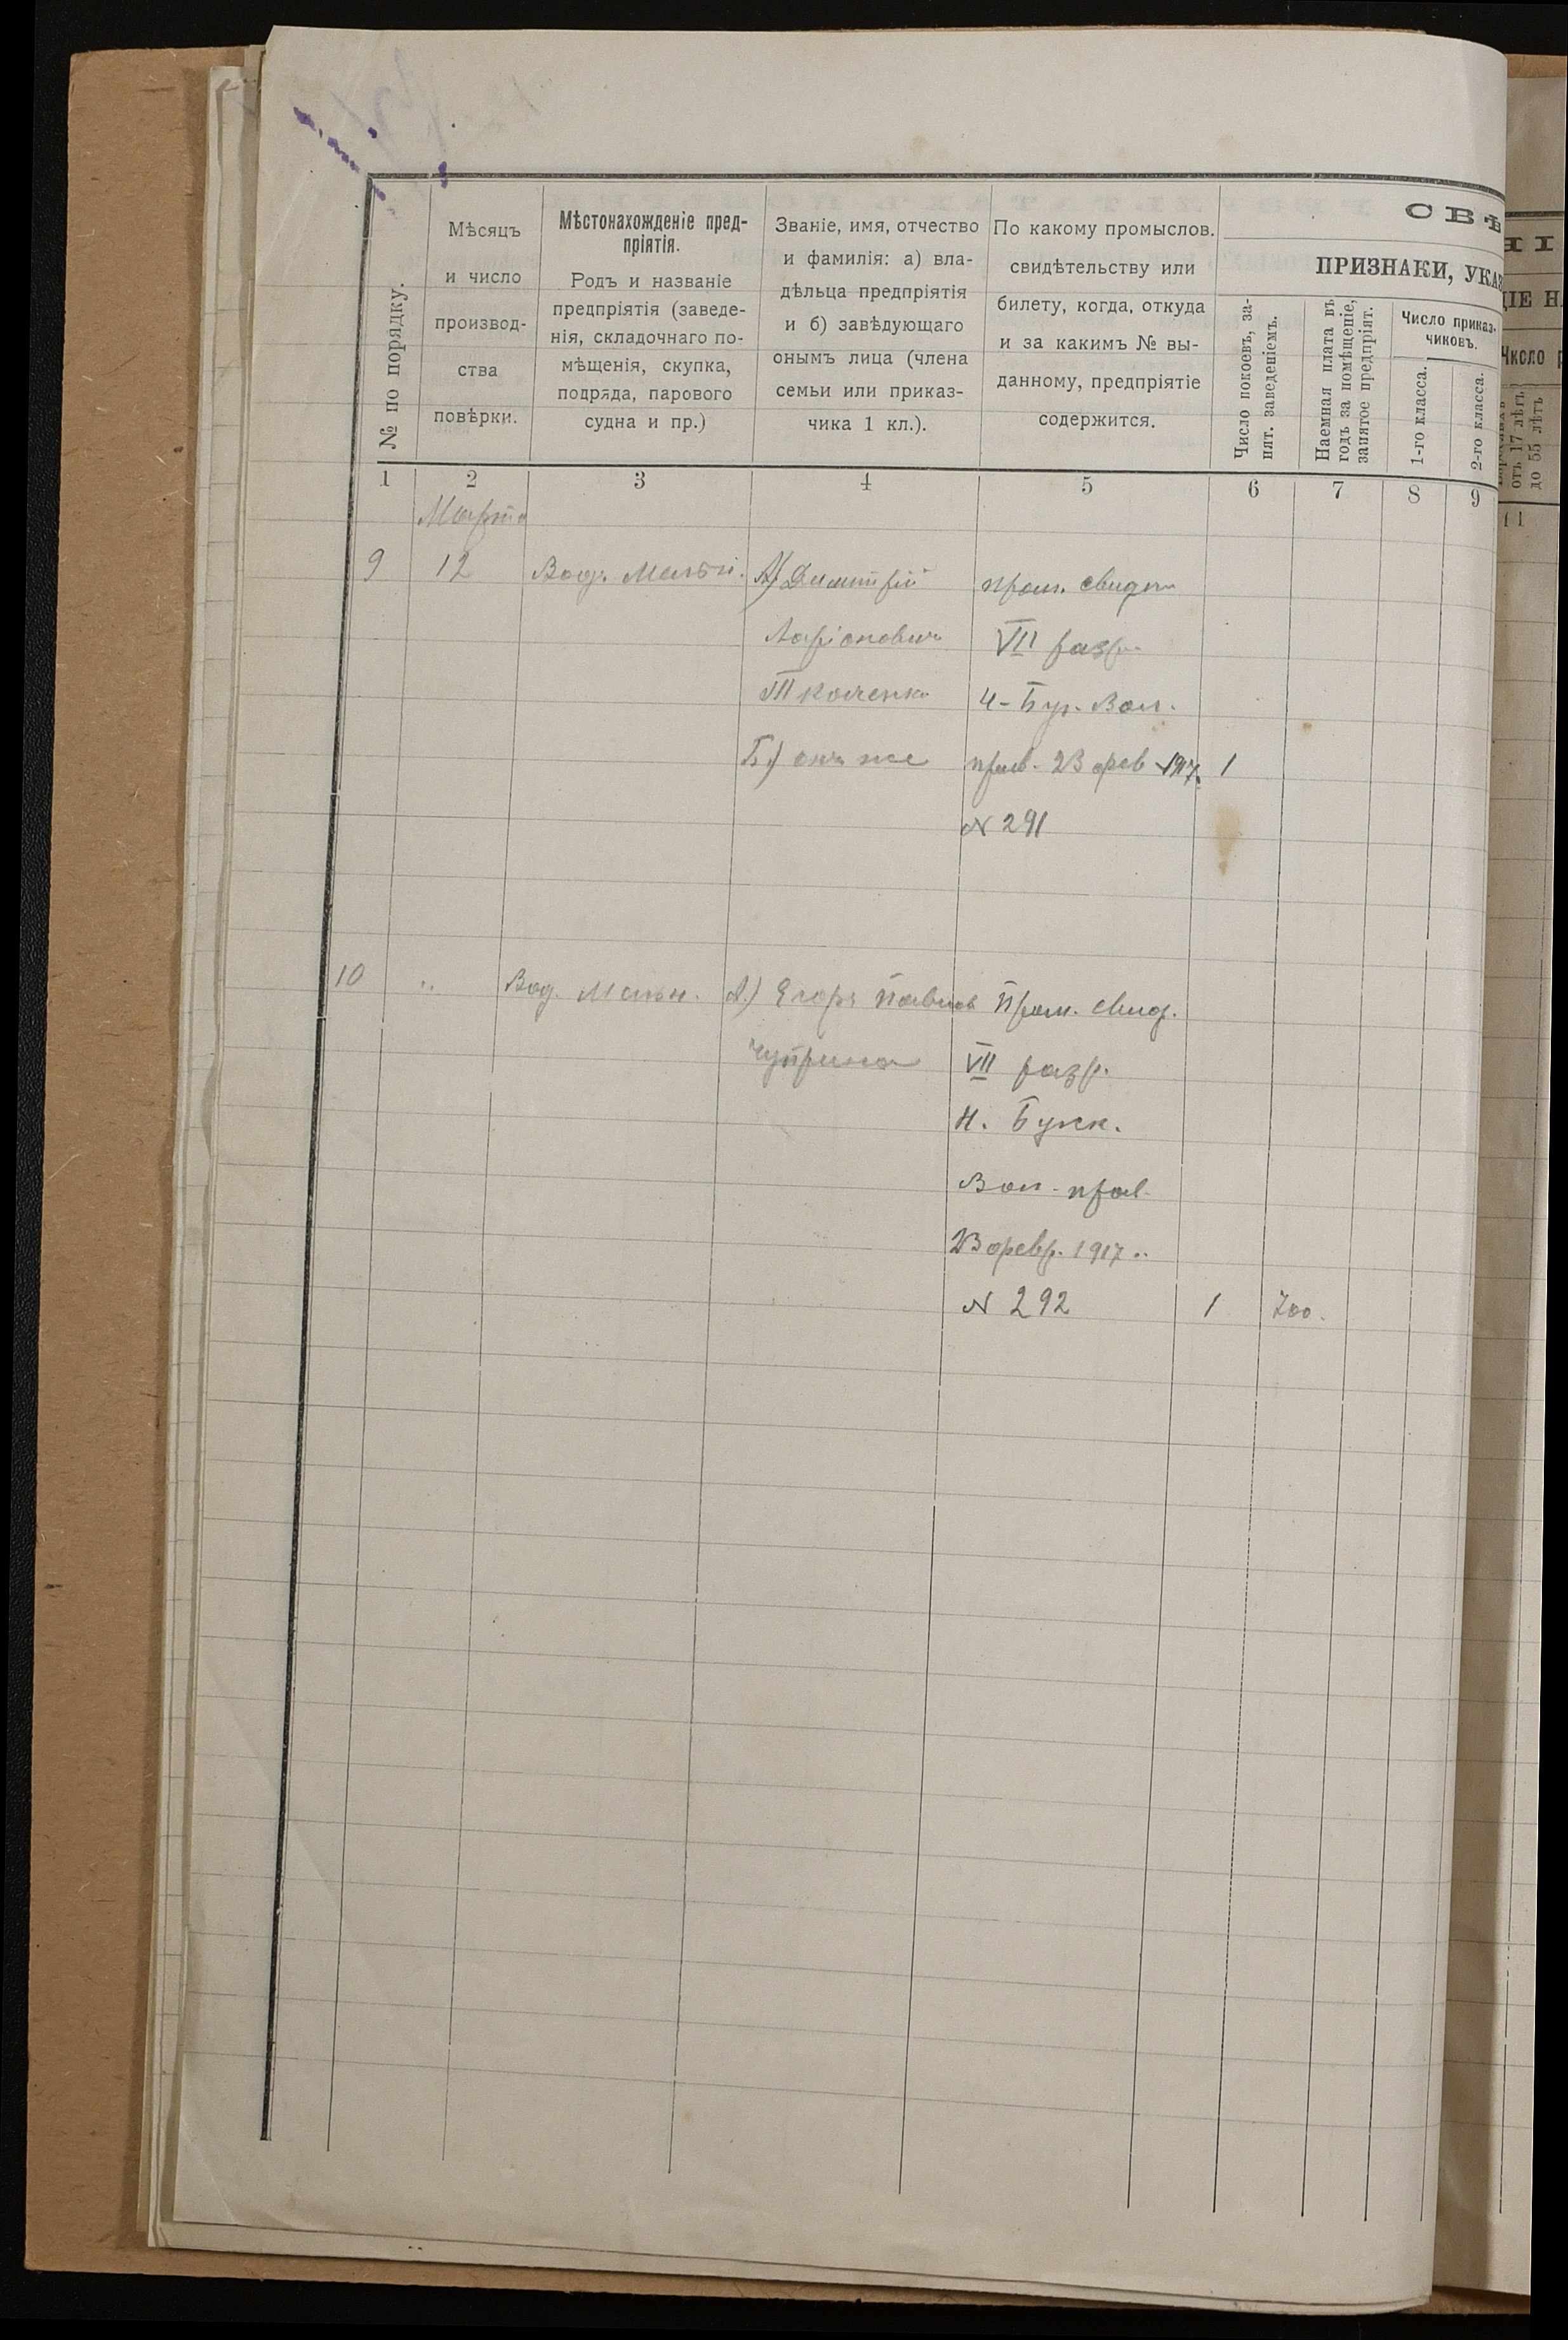 СВѢ
ПРИЗНАКИ, УКАЗ
№ по порядку.
Мѣсяцъ
и число
производ-
ства
повѣрки.
Мѣстонахожденіе пред-
пріятія.
Родъ и названіе
предпріятія (заведе-
нія, складочнаго по-
мѣщенія, скупка,
подряда, парового
судна и пр.)
Званіе, имя, отчество
и фамилія: а) вла-
дѣльца предпріятія
и б) завѣдующаго
онымъ лица (члена
семьи или приказ-
чика 1 кл.).
По какому промыслов.
свидѣтельству или
билету, когда, откуда
и за какимъ № вы-
данному, предпріятіе
содержится.
Число покоевъ, за-
нят. заведеніемъ.
Наемная плата въ
годъ за помѣщеніе,
занятое предпріят.
Число приказ-
чиковъ.
1-го класса.
2-го класса.
1 2 3 4 5 6 7 8 9
Марта
9 12 Вод. Мельн. А) Димитрій пром. свид.
Ларіоновичъ VII разр.
Ткаченко Бур. Вол.
Б) онъ же прав. 23 фев 1917. 1
N 291
10 " Вод. Мельн. А) Егоръ Павлов Пром. свид.
Чуприна VII разр.
Н.
Вол. прав.
23 февр. 1917
N 292 1 700.
НІ
ЩІЕ Н
Число р
отъ 17 лѣтъ
до 55 лѣтъ
11